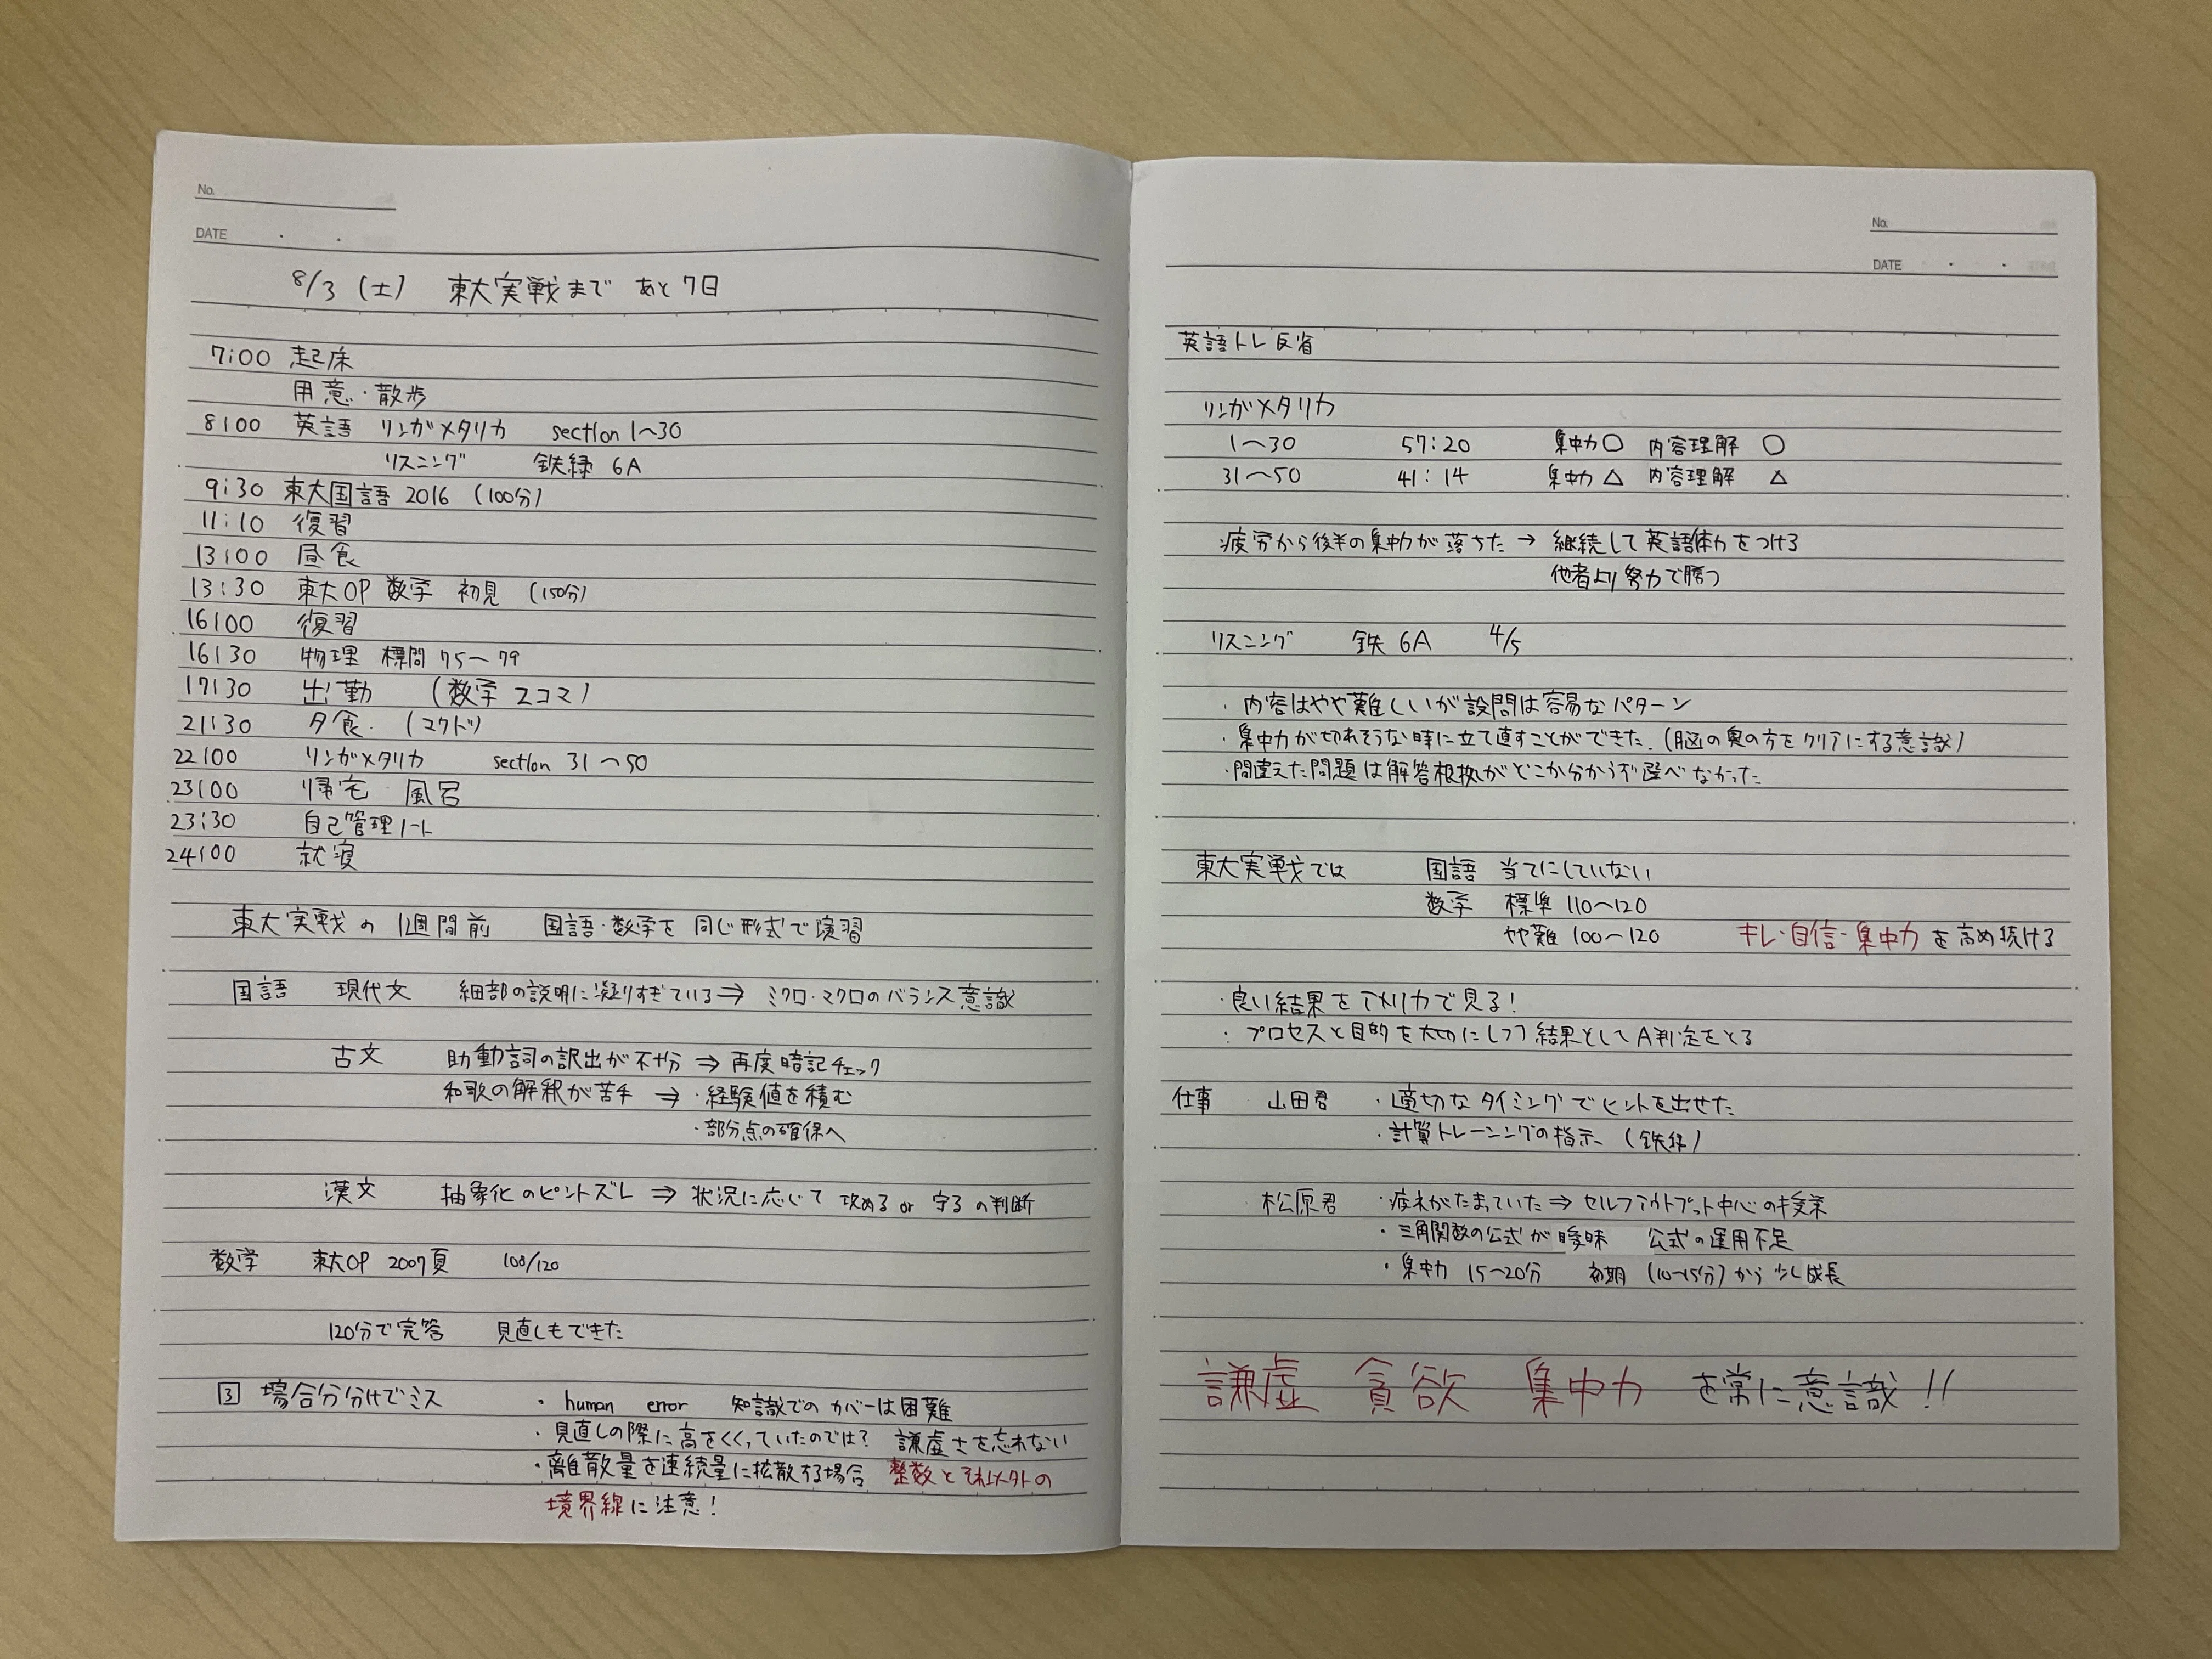 No.
DATE ・ ・
8/3 (土) 東大実戦まで あと7日
7:00 起床
用意・散歩
8:00 英語 リンガメタリカ section 1〜30
リスニング 鉄緑 6A
9:30 東大国語 2016 (100分)
11:10 復習
13:00 昼食
13:30 東大OP 数学 初見 (150分)
16:00 復習
16:30 物理 標問 75〜79
17:30 出勤 (数学 2コマ)
21:30 夕食. (マクド)
22:00 リンガメタリカ section 31〜50
23:00 帰宅 風呂
23:30 自己管理ノート
24:00 就寝
東大実戦の1週間前 国語・数学を同じ形式で演習
国語 現代文 細部の説明に凝りすぎている⇒ ミクロ・マクロのバランス意識
古文 助動詞の訳出が不十分 ⇒ 再度暗記チェック
和歌の解釈が苦手 ⇒ ・経験値を積む
・部分点の確保へ
漢文 抽象化のピントズレ ⇒ 状況に応じて 攻める or 守る の判断
数学 東大OP 2007頁 108/120
120分で完答 見直しもできた
3 場合分けでミス ・human error 知識でのカバーは困難
・見直しの際に高をくくっていたのでは? 謙虚さを忘れない
・離散量を連続量に拡散する場合 整数とそれ以外の
境界線に注意!
No.
DATE ・ ・
英語トレ反省
リンガメタリカ
1〜30 57:20 集中力○ 内容理解 ○
31〜50 41:14 集中力△ 内容理解 △
・疲労から後半の集中力が落ちた → 継続して英語体力をつける
他者より努力で勝つ
リスニング 鉄 6A 4/5
・内容はやや難しいが設問は容易なパターン
・集中力が切れそうな時に立て直すことができた.(脳の奥の方をクリアにする意識)
・間違えた問題は解答根拠がどこか分からず選べなかった
東大実戦では 国語 当てにしていない
数学 標準 110〜120
やや難 100〜120 キレ・自信・集中力を高め続ける
・良い結果をアメリカで見る!
・プロセスと目的を大切にしつつ結果としてA判定をとる
仕事 山田君 ・適切なタイミングでヒントを出せた
・計算トレーニングの指示 (鉄緑)
松原君 ・疲れがたまっていた⇒ セルフアウトプット中心の授業
・三角関数の公式が曖昧 公式の運用不足
・集中力 15〜20分 初期 (10〜15分)から少し成長
謙虚 貪欲 集中力 を常に意識!!